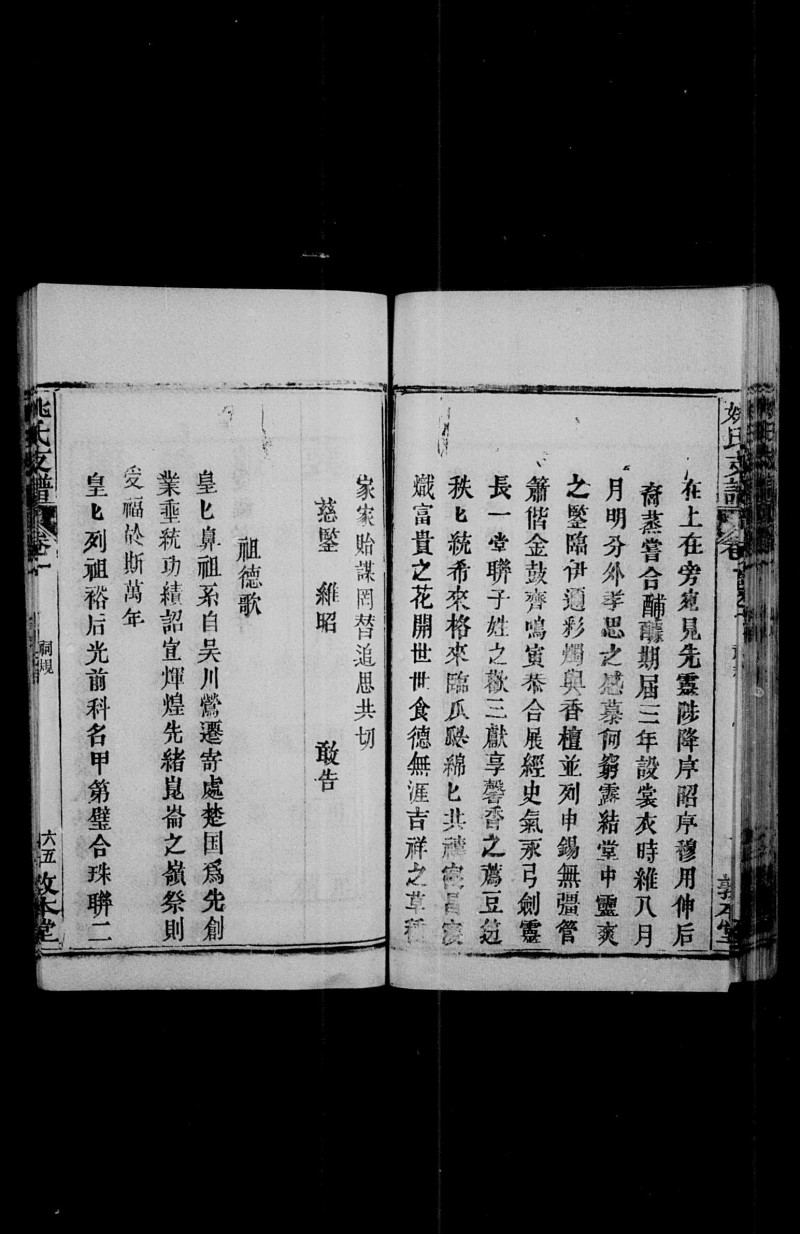 姚氏支譜
卷一
敦本堂
在上在旁宛見先靈陟降序昭序穆用伸后
裔蒸嘗合酺醵期届三年設裳衣時雜八月
月明分外孝思之感慕何窮露結堂中靈爽
之鑒臨伊邇彩燭與香檀並列申錫無疆管
簫偕金鼓齊鳴寅恭合展經史氣求弓劍靈
長一堂聯子姓之歡三獻享馨香之薦豆籩
秩匕統希來格來臨瓜瓞綿匕共禱寖昌寖
熾富貴之花開世世食德無涯吉祥之草種
家家貽謀罔替追思共切
慈鑒 維昭 敢告
祖德歌
皇匕鼻祖系自吴川鶯遷寄處楚国爲先創
業垂統功績詔宣煇煌先緒崑崙之嶺祭則
受福於斯萬年
皇匕列祖裕后光前科名甲第璧合珠聯二
姚氏支譜
卷一
祠規
六五
敦本堂